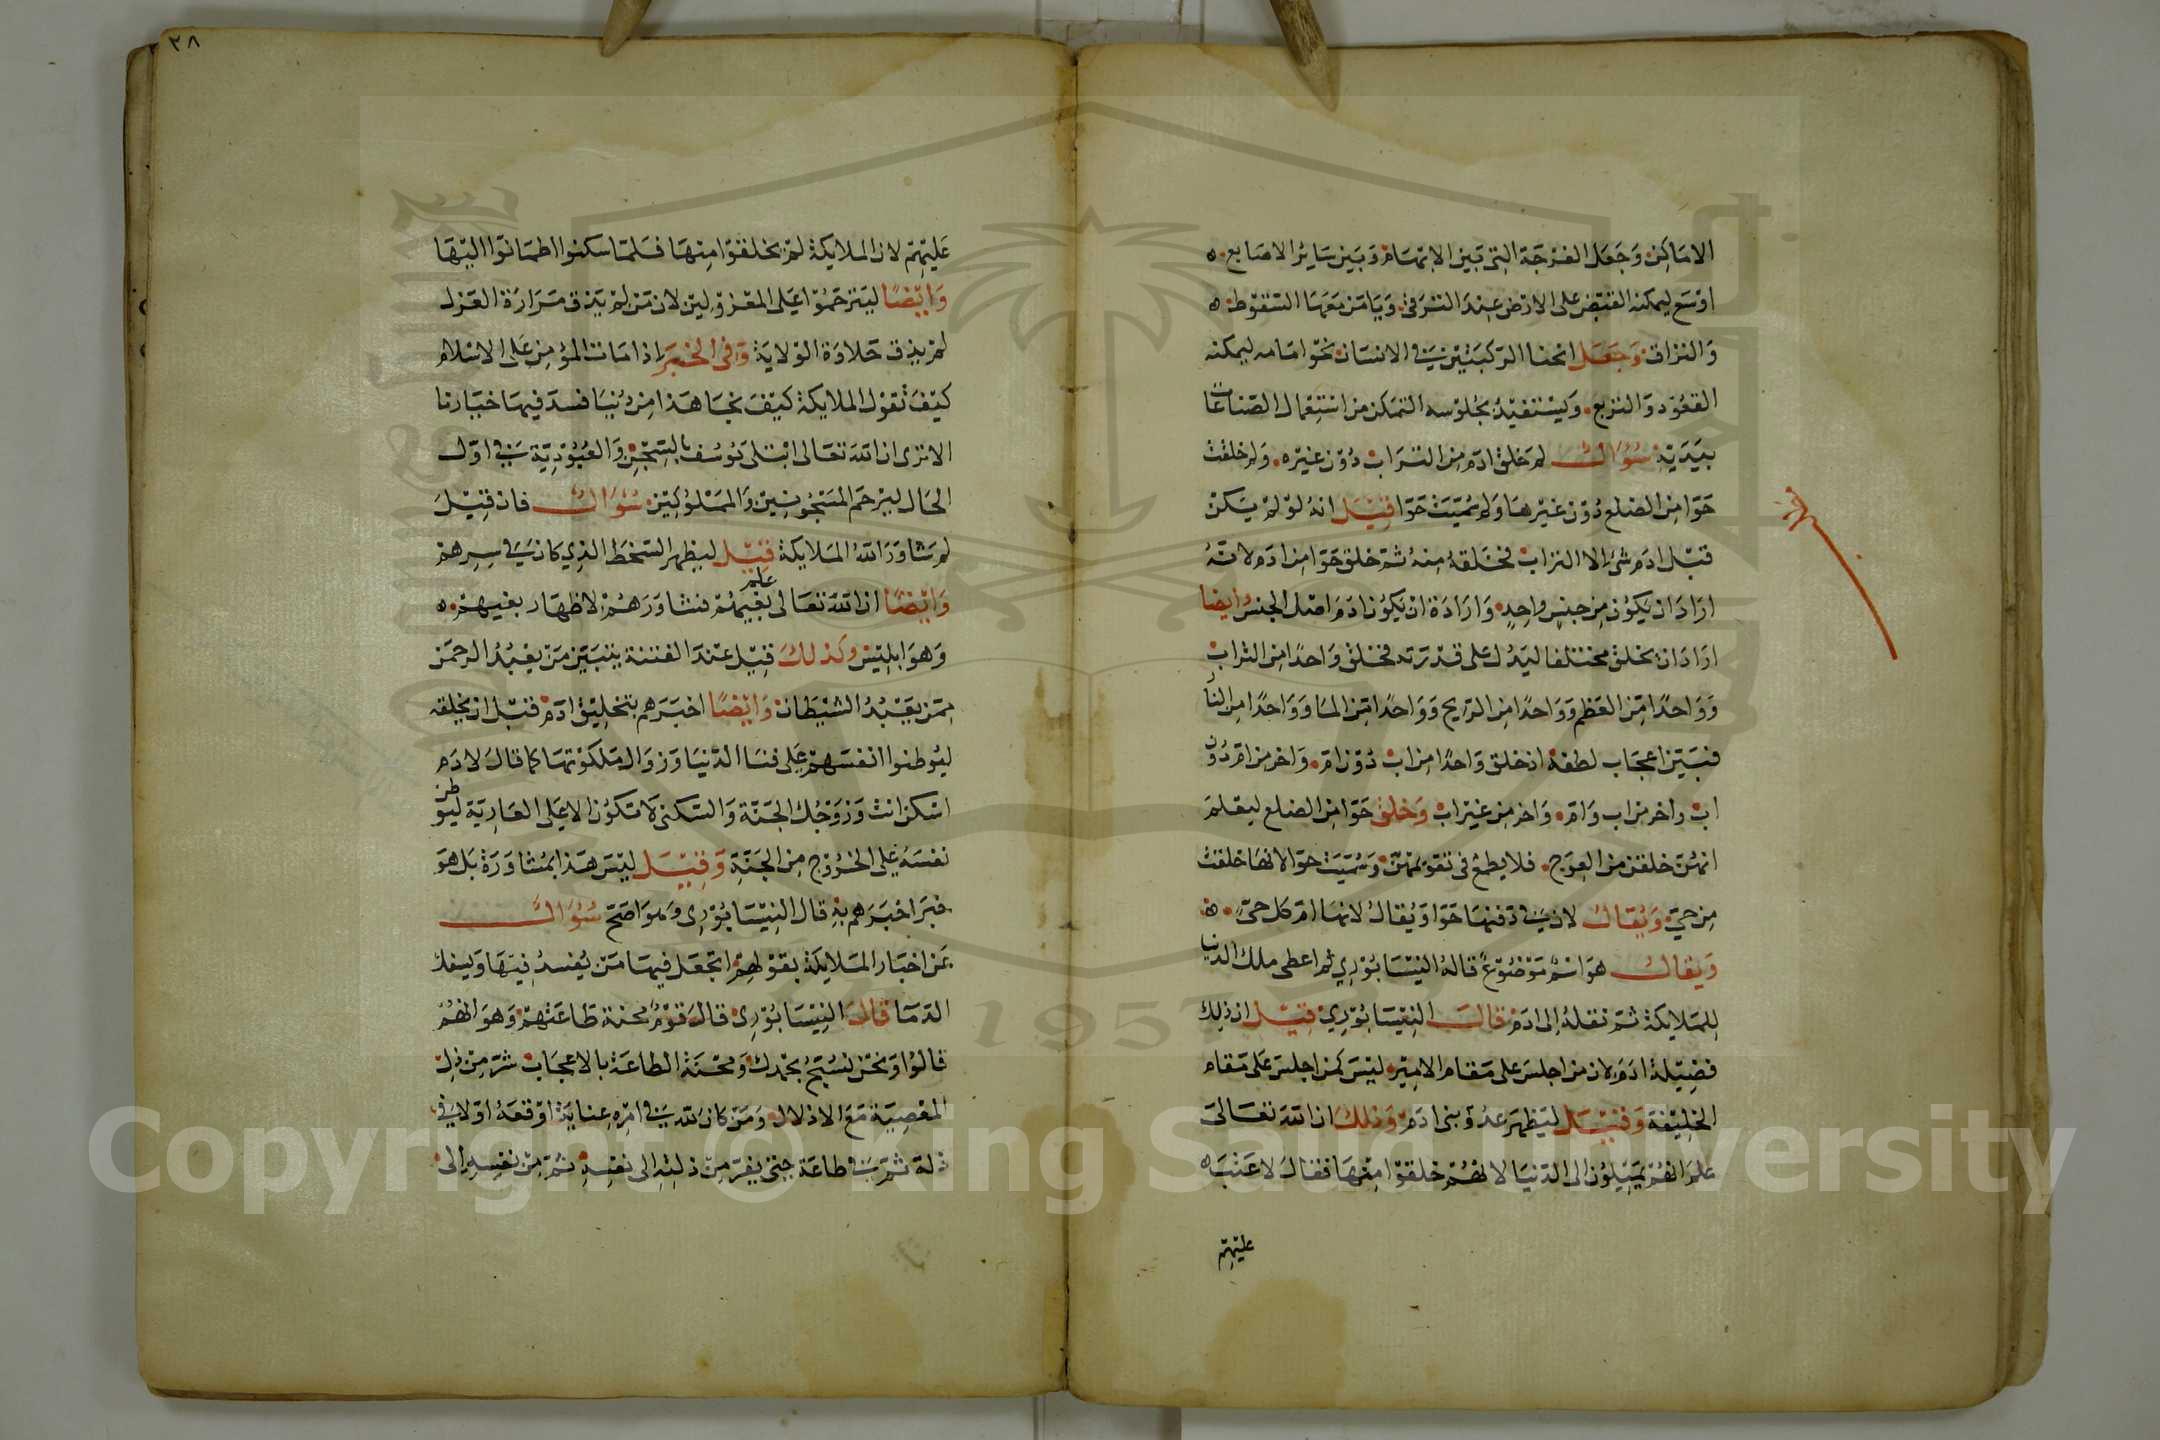 الاماكن وجعل الفرجة التي بين الابهام وبين ساير الاصابع ه
اوسع ليمكنه القبض على الارض عند الترقي ويامن معها السقوط ه
والنزاق وجعل انحنا الركبتين في الانسان نحو امامه ليمكنه
القعود والتربع ويستفيد بجلوسه التمكن من استعمال الصناعات
بيديه سؤال لم خلق ادم من التراب دون غيره ولم خلقت
حوا من الضلع دون غيرها ولم سميت حوا قيل انه لو لم يكن
قبل ادم شئ الا التراب فخلقه منه ثم خلق حوا من ادم لانه
اراد ان يكون من جنس واحد وارادة ان يكون ادم اصل الجنس ايضا
اراد ان يخلق مختلفا ليدل على قدرته فخلق واحدا من التراب
وواحدا من العظم وواحدا من الريح وواحدا من الما وواحدا من النار
فبين اعجاب لطفه اذ خلق واحدا من اب دون ام واخر من ام دون
اب واخر من اب وام واخر من غير اب وخلق حوا من الضلع ليعلم
انهن خلقن من العوج فلا يطمع في تقويمهن وسميت حوا لانها خلقت
من حي ويقال لان في ذقنها حوا ويقال لانها ام كل حي ه
ويقال هو اسم موضوع قاله النيسابوري ثم اعطى ملك الدنيا
للملايكة ثم نقله الى ادم قال النيسابوري قيل ان ذلك
فضيلة ادم لان من اجلس على مقام الامير ليس كمن اجلس على مقام
الخليفة وقيل ليظهر عدو بني ادم وذلك ان الله تعالى
علم انهم يميلون الى الدنيا لانهم خلقوا منها فقال لا عتب ه
عليهم
٣٨
عليهم لان الملايكة لم يخلقوا منها فلما سكنوا اطمانوا اليها
وايضا ليترحموا على المعزولين لان من لم يذق مرارة العزل
لم يذق حلاوة الولاية وفي الخبر اذا مات المؤمن على الاسلام
كيف تقول الملايكة كيف نجا هذا من دنيا فسد فيها خيارنا
الا ترى ان الله تعالى ابتلى يوسف بالسجن والعبودية في اول
الحال ليرحم المسجونين والمملوكين سؤال فان قيل
لم شاور الله الملايكة قيل ليظهر السخط الذي كان في سرهم
وايضا ان الله تعالى علم بغيهم فشاورهم لاظهار بغيهم ه
وهو ابليس وكذلك قيل عند الفتنة يتبين من يعبد الرحمن
ممن يعبد الشيطان وايضا اخبرهم بتخليق ادم قبل ان يخلقه
ليوطنوا انفسهم على فنا الدنيا وزوال ملكوتها كما قال لادم
اسكن انت وزوجك الجنة والسكنى لا تكون الا على العارية ليوطن
نفسه على الخروج من الجنة وقيل ليس هذا بمشاورة بل هو
خبر اخبرهم به قال النيسابوري وهو اصح سؤال
عن اخبار الملايكة بقولهم اتجعل فيها من يفسد فيها ويسفك
الدما قال النيسابوري قال قوم محنة طاعتهم وهو انهم
قالوا ونحن نسبح بحمدك ومحنة الطاعة بالاعجاب شر من ذل
المعصية مع الاذلال ومن كان لله في امره عناية اوقعه اولا في
ذلة ثم في طاعة حتى يفر من ذلته الى نفسه ثم من نفسه الى